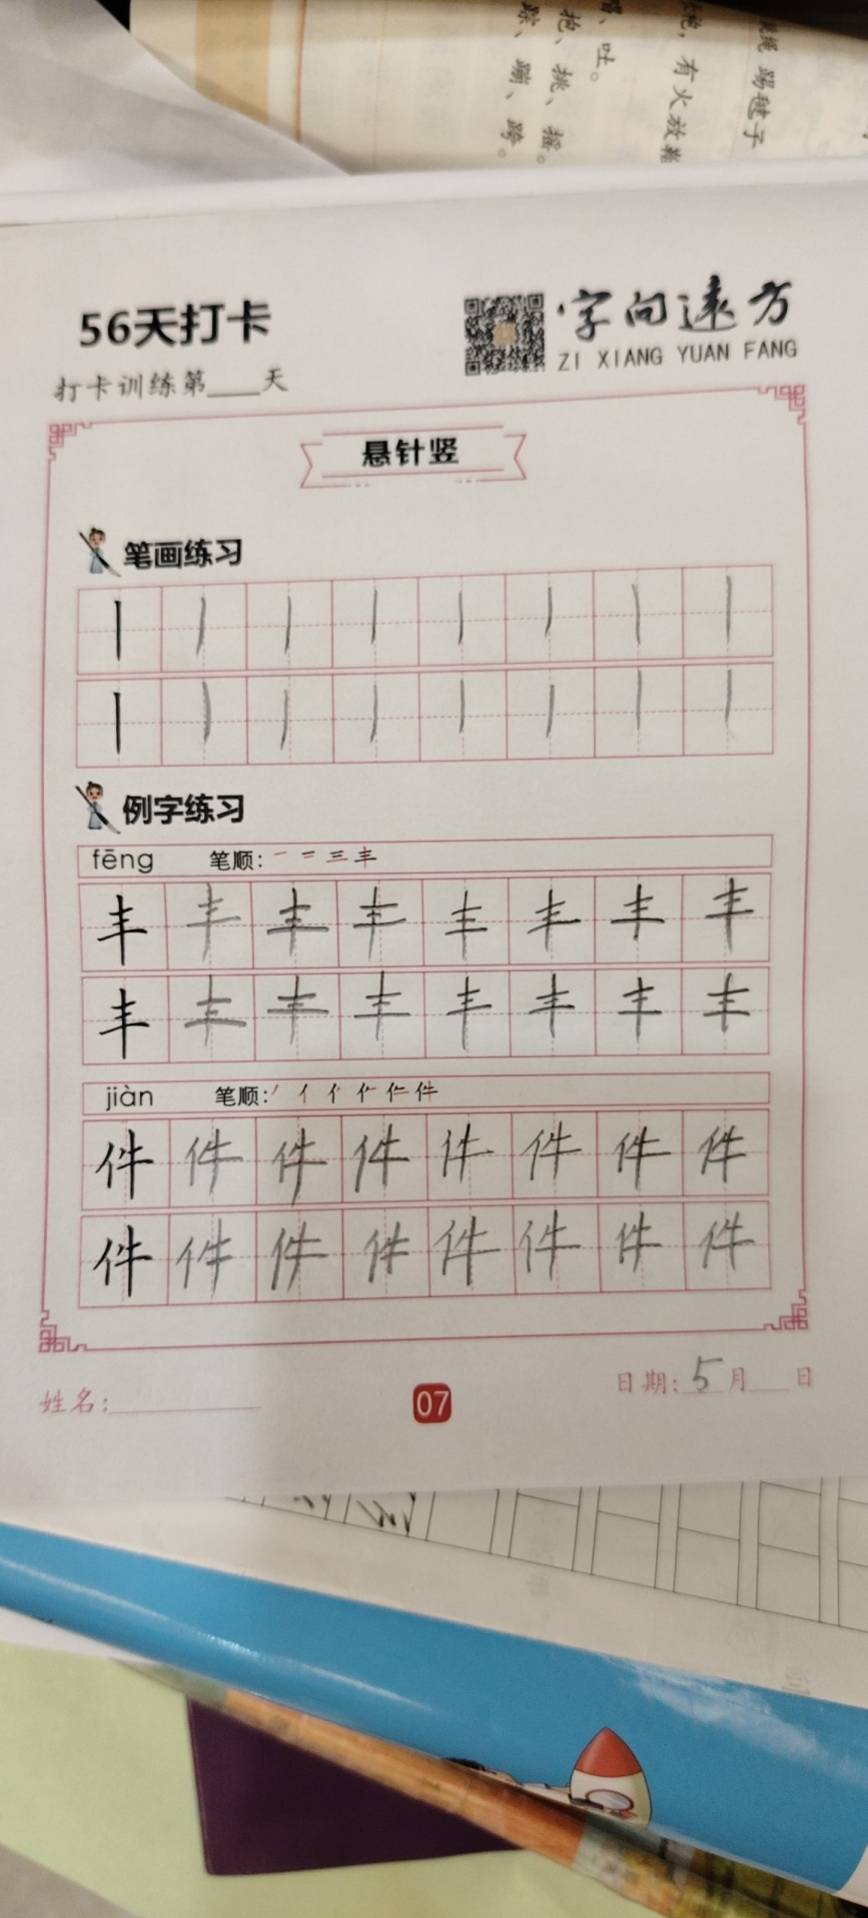 跳绳 踢毽子
炮，有火放鞭
、吐。
抱、挑、摇。
踪、蹦、跨。
56天打卡
字向远方
ZI XIANG YUAN FANG
打卡训练第___天
悬针竖
笔画练习
丨 丨 丨 丨 丨 丨 丨 丨
丨 丨 丨 丨 丨 丨 丨 丨
例字练习
fēng 笔顺：一 二 三 丰
丰 丰 丰 丰 丰 丰 丰 丰
丰 丰 丰 丰 丰 丰 丰 丰
jiàn 笔顺：丿 亻 件
件 件 件 件 件 件 件 件
件 件 件 件 件 件 件 件
姓名：
07
日期：5月___日